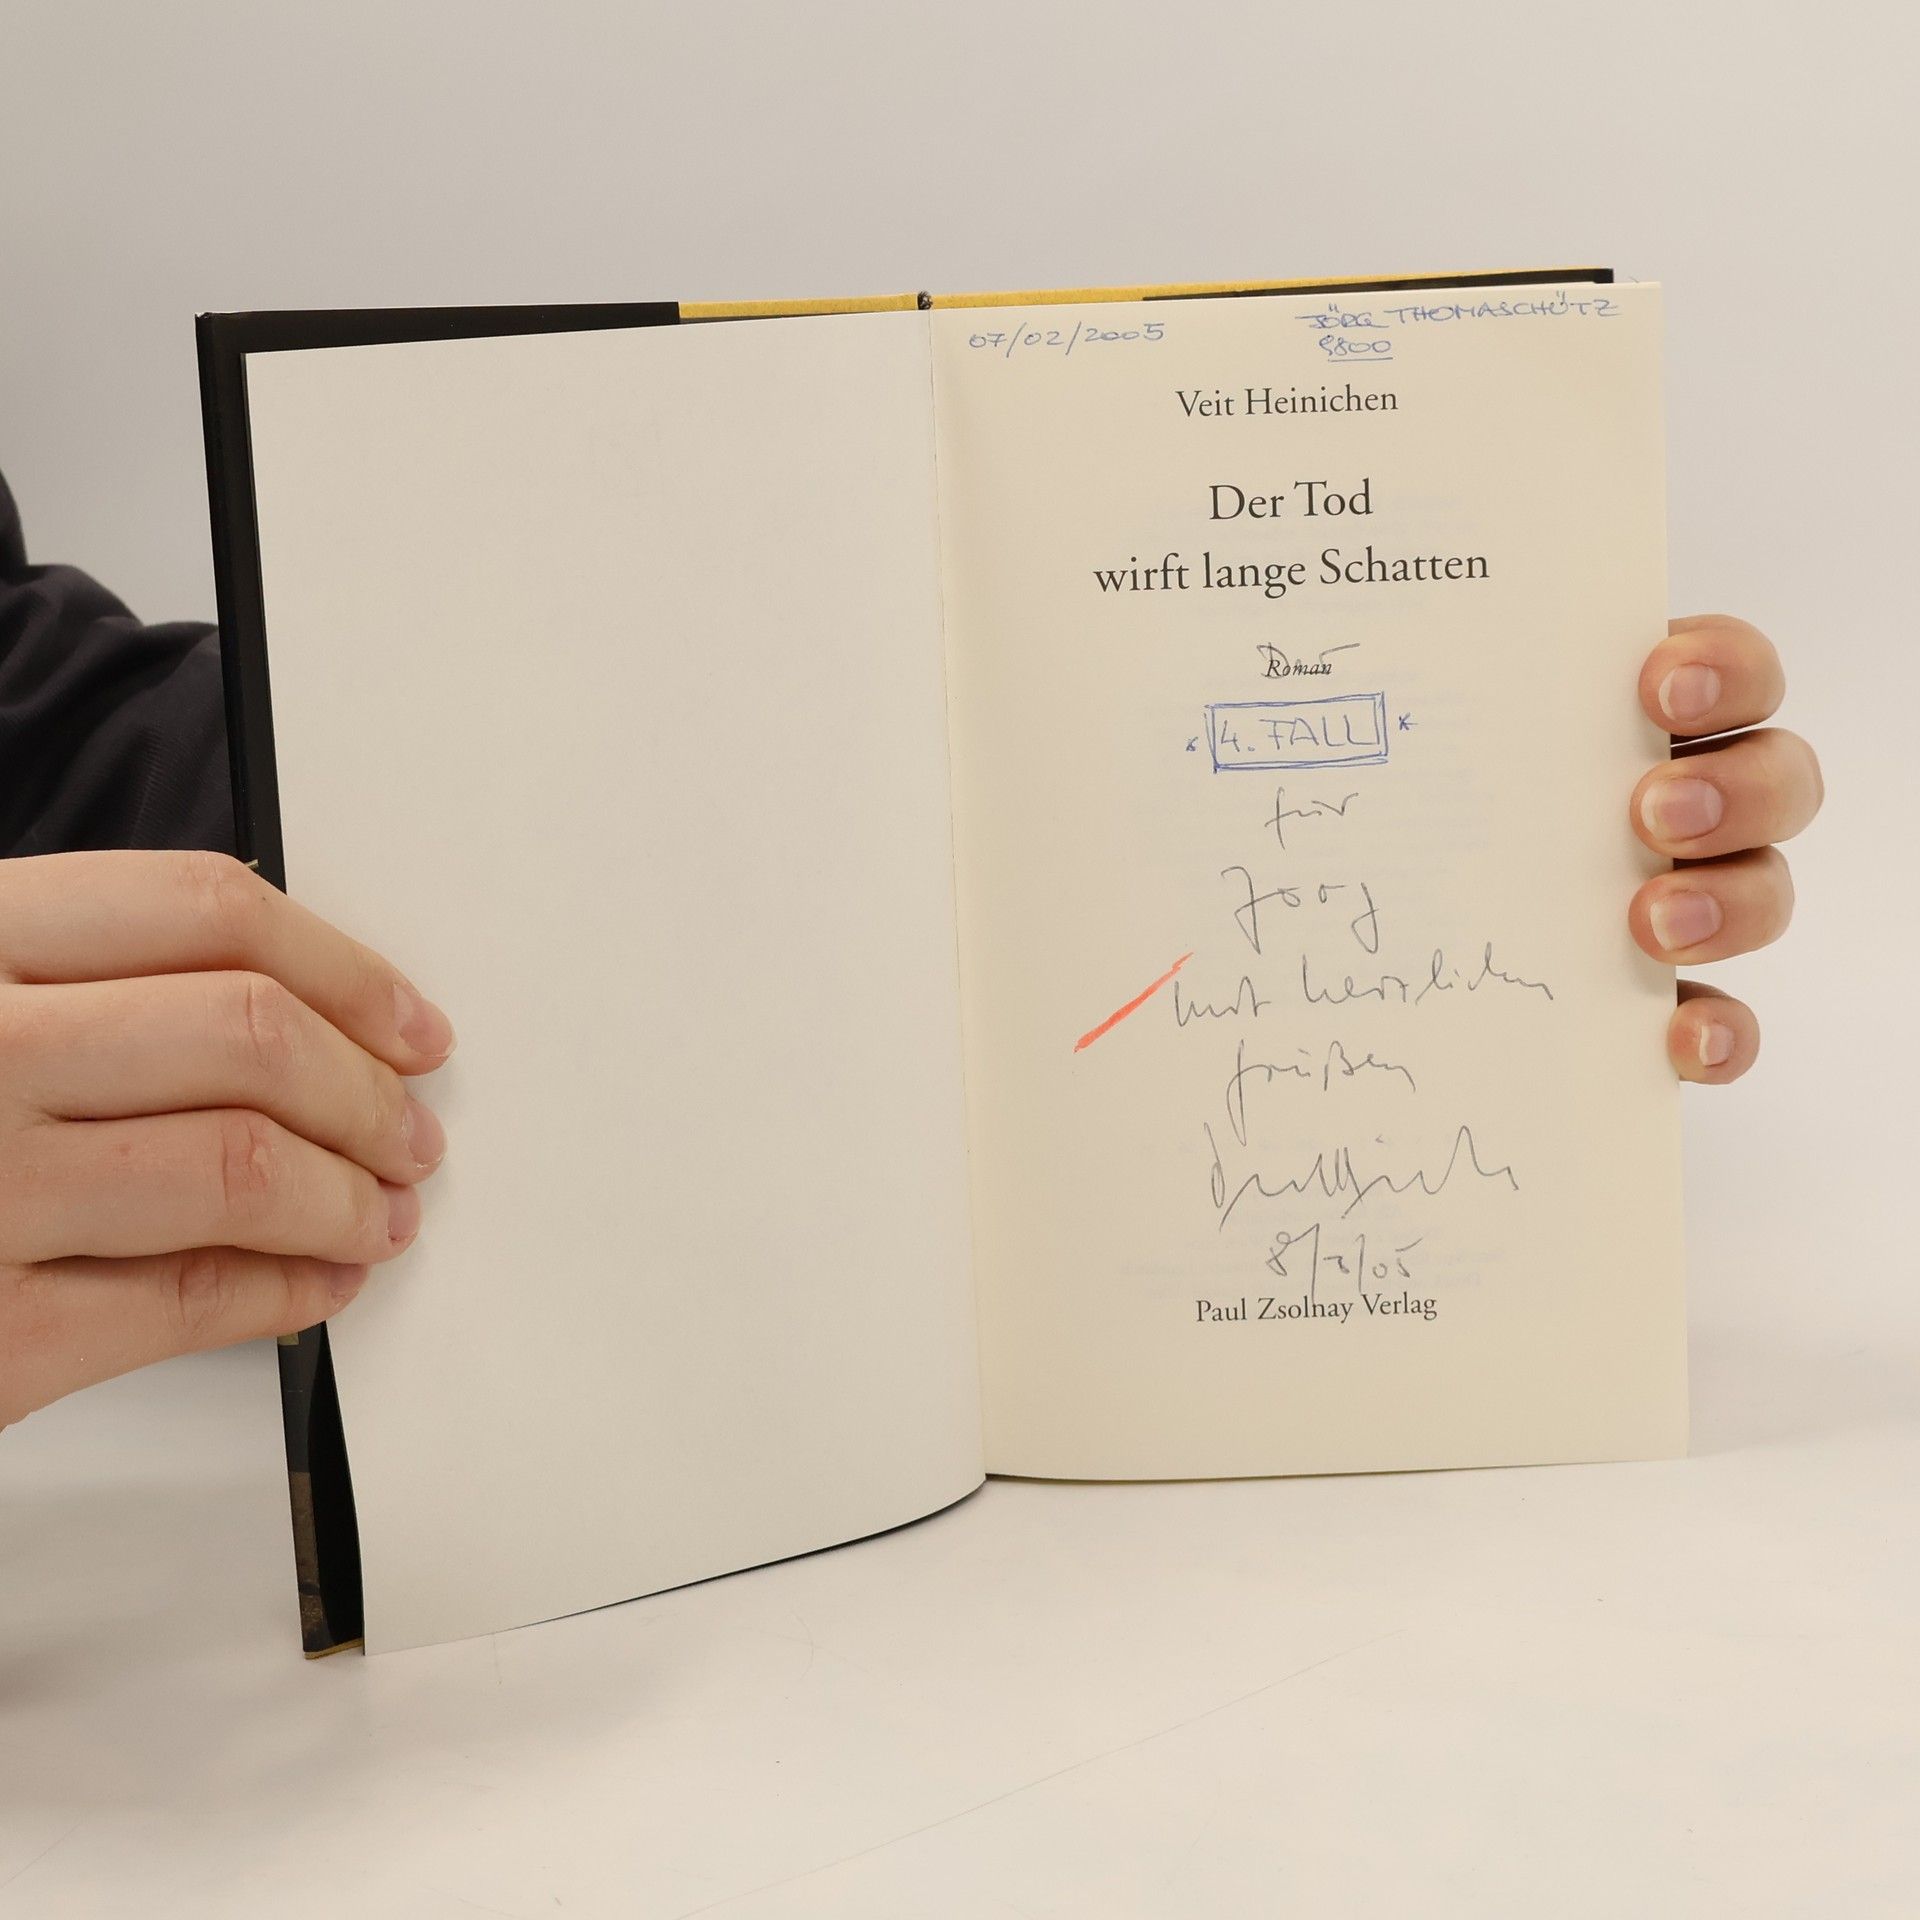 07/02/2005
JÖRG THOMASCHÜTZ
9800
Veit Heinichen
Der Tod
wirft lange Schatten
Roman
* 4. FALL *
für
Jörg
mit herzlichen
Grüßen
8/3/05
Paul Zsolnay Verlag